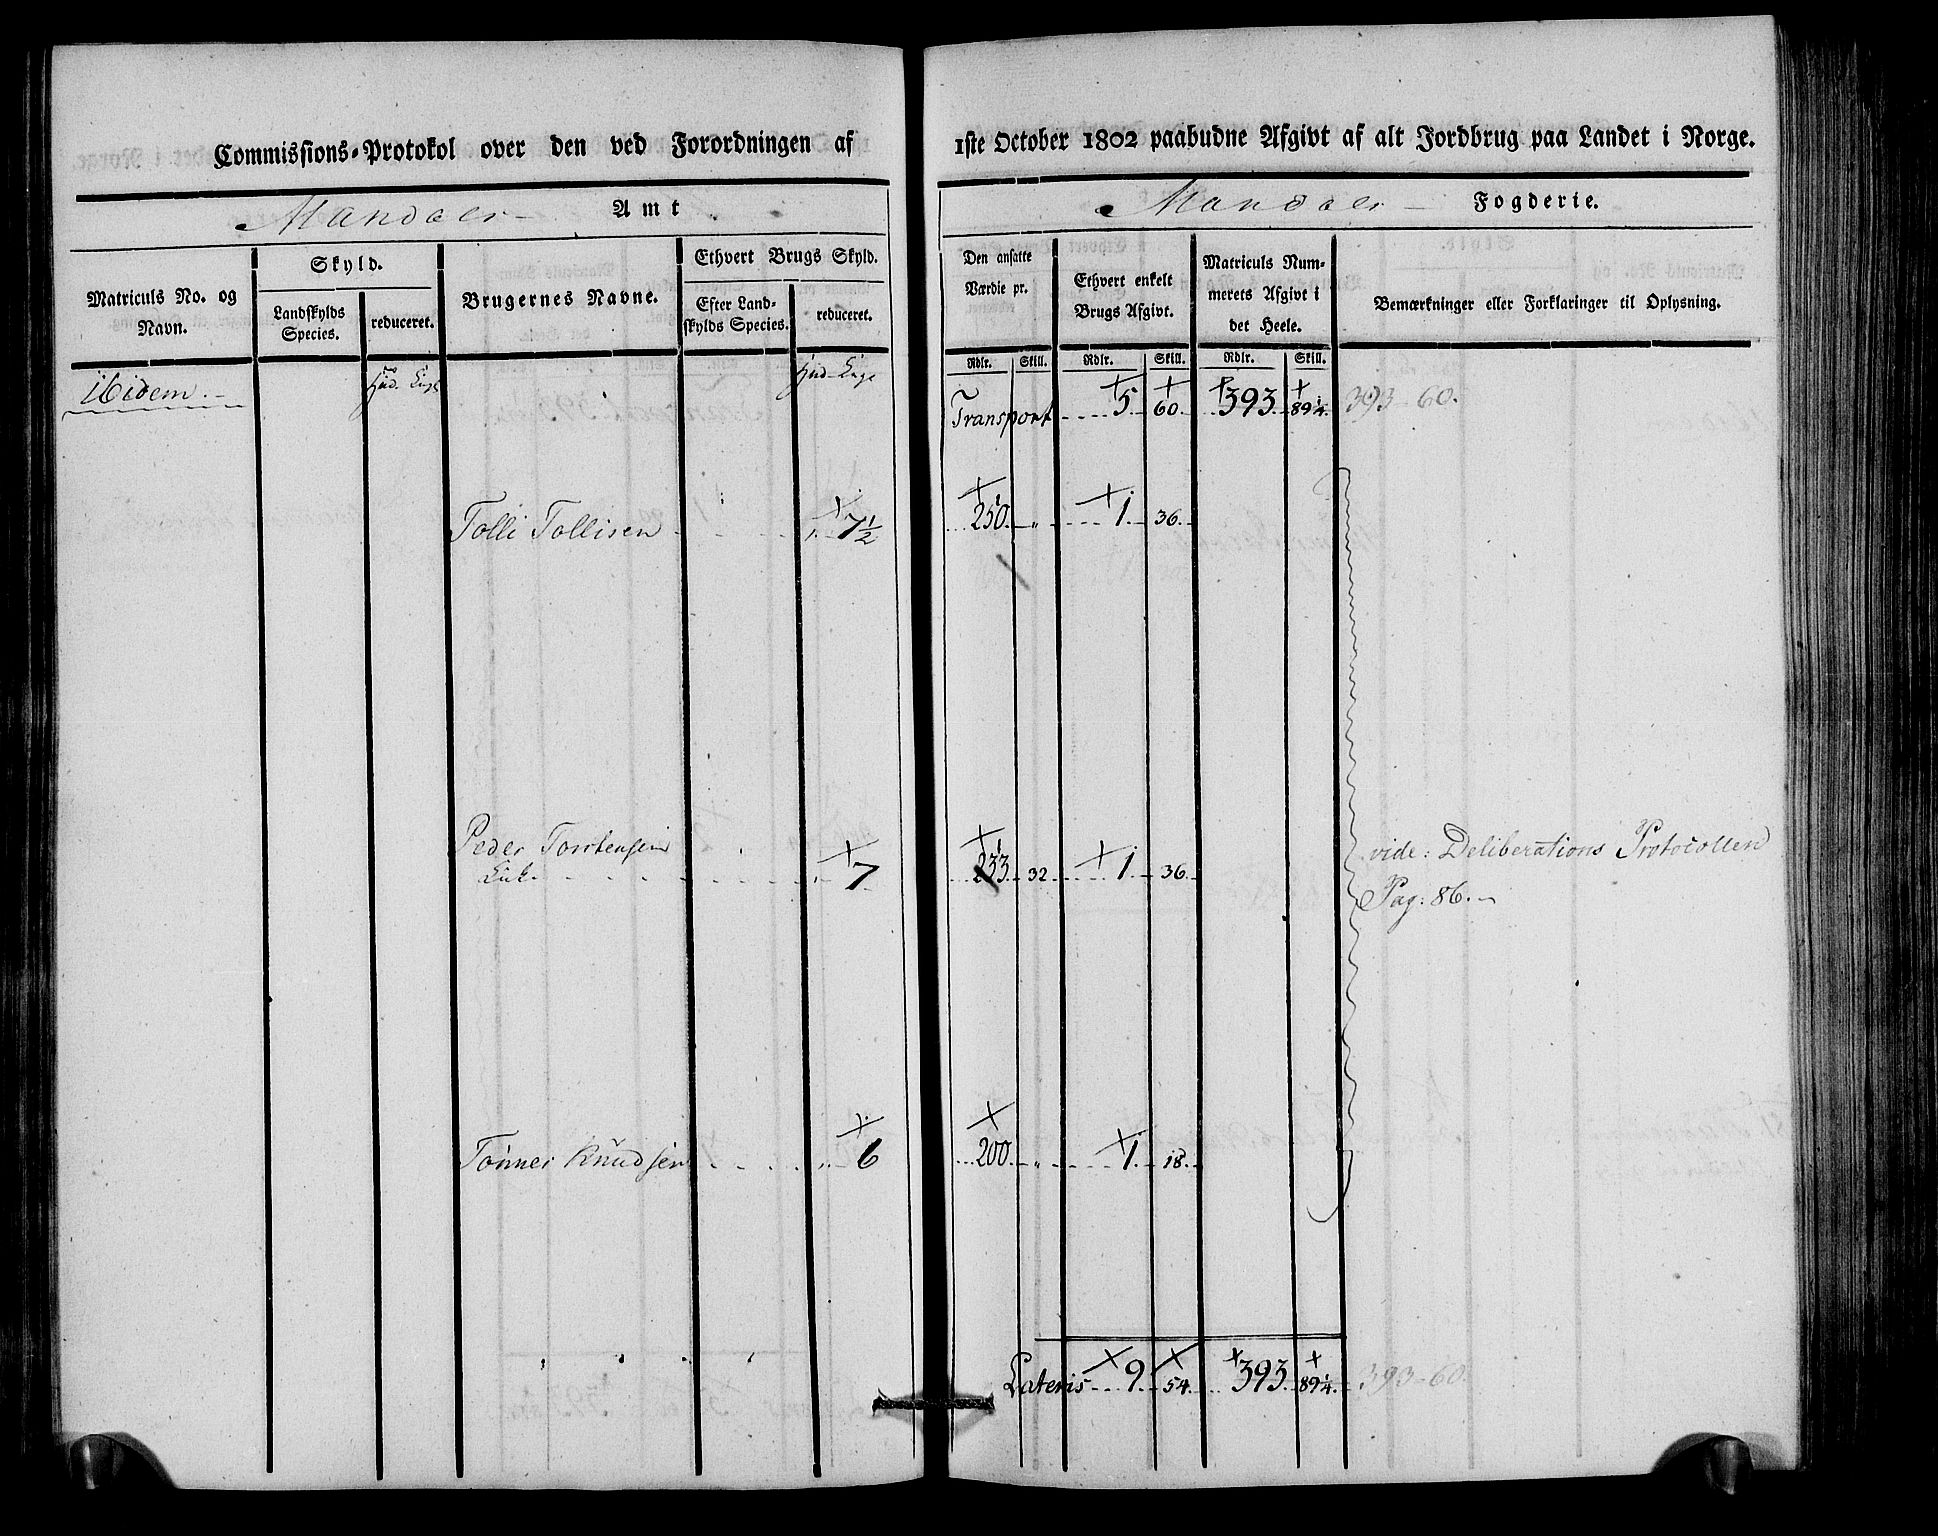 Commissions-Protokol over den ved Forordningen af
1ste October 1802 paabudne Afgivt af alt Jordbrug paa Landet i Norge.
Mandals Amt
Mandals Fogderie.
Matriculs No. og Navn.
Skyld.
Landskylds Species.
reduceret.
Brugernes Navne.
Ethvert Brugs Skyld.
Efter Landskylds Species.
reduceret.
Den ansatte Værdie pr.
Ethvert enkelt Brugs Afgivt.
Matriculs Nummerets Afgivt i det Heele.
Bemærkninger eller Forklaringer til Oplysning.
Rdlr. Skill. Rdlr. Skill. Rdlr. Skill.
Ibidem.
Hud. Eng.
Hud. Eng.
Transport 5 60. 393. 89¼. 393-60.
Tolli Tollisen 7½ 250 „ 1 36.
Peder Torstensen
7 233 32 1 36.
vide: Deliberations Protocollen
Pag: 86.
Tönnes Knudsen „ 6 200 „ 1 18.
Lateris 9. 54. 393. 89¼. 393-60.